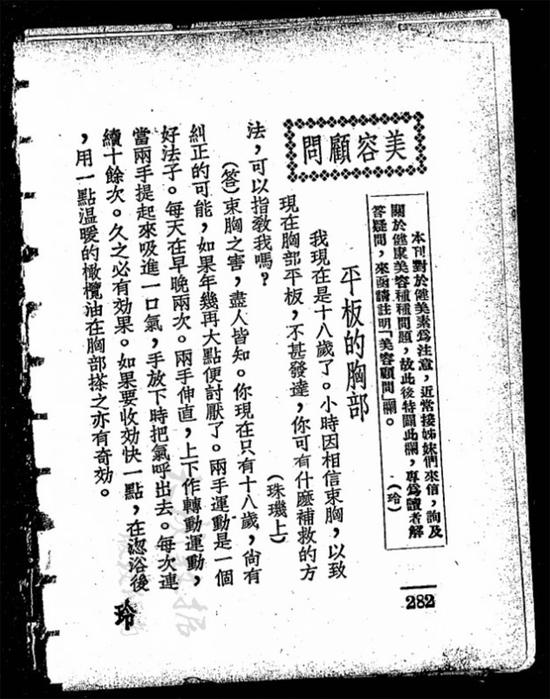 美容顧問
本刊對於健美素爲注意，近常接姊妹們來信，詢及
關於健康美容種種問題，故此後特闢此欄，專爲讀者解
答疑問，來函請註明「美容顧問」欄。　（玲）
平板的胸部
我現在是十八歲了。小時因相信束胸，以致
現在胸部平板，不甚發達，你可有什麽補救的方
法，可以指教我嗎？　（珠璣上）
（答）束胸之害，盡人皆知。你現在只有十八歲，尙有
糾正的可能，如果年幾再大點便討厭了。兩手運動是一個
好法子。每天在早晚兩次。兩手伸直，上下作轉動運動，
當兩手提起來吸進一口氣，手放下時把氣呼出去。每次連
續十餘次。久之必有効果。如果要收効快一點，在浴後
，用一點温暖的橄欖油在胸部搽之亦有奇効。　玲
282